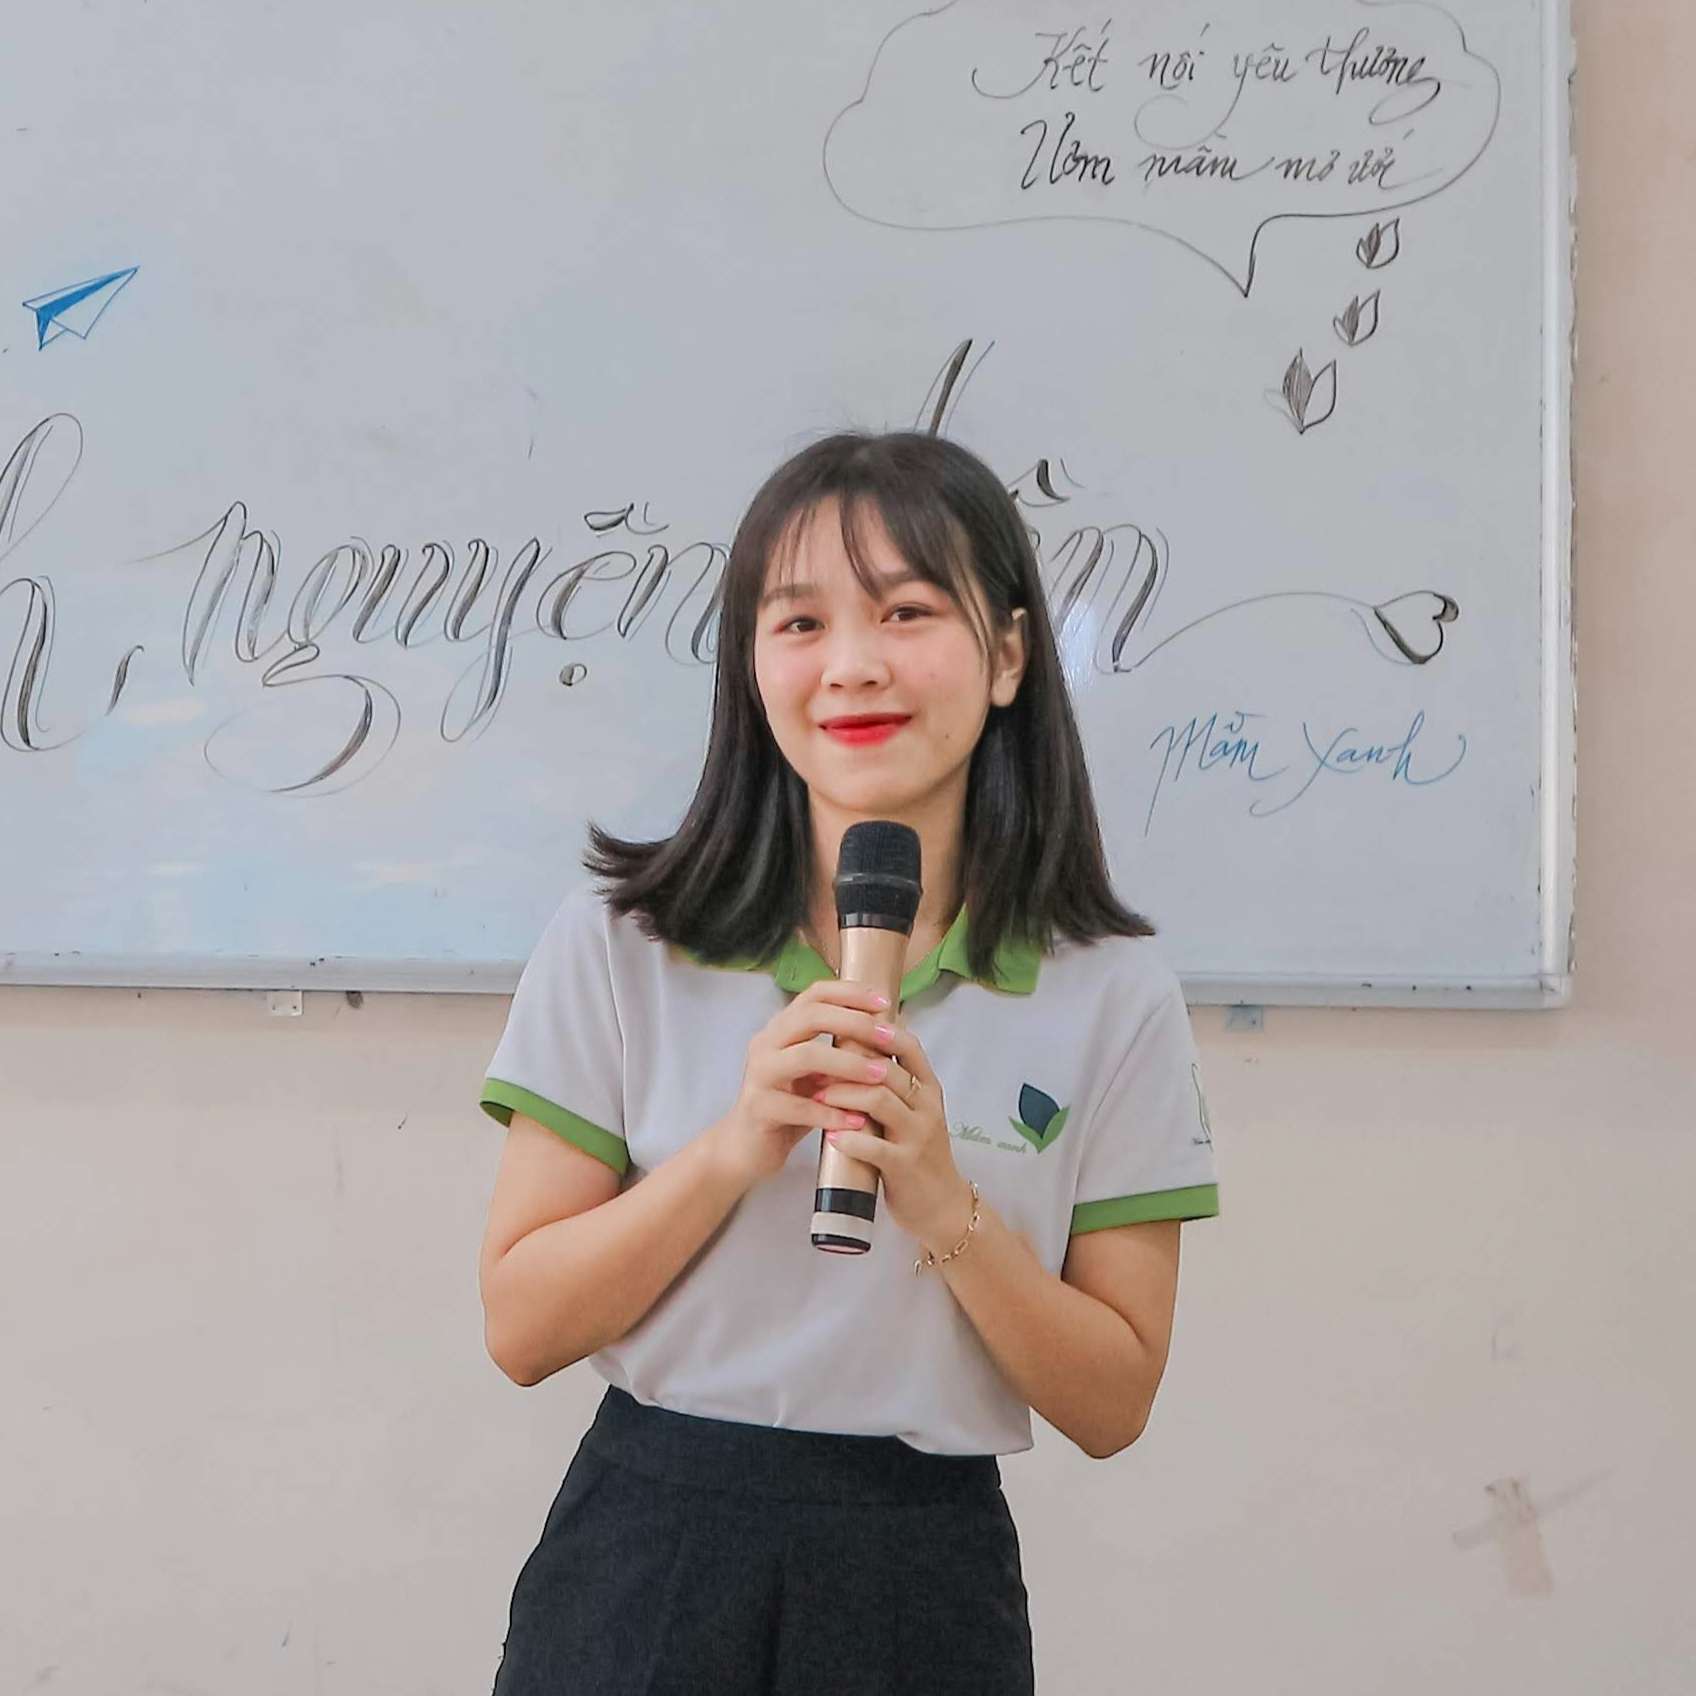 Kết nối yêu thương
Ươm mầm mơ ước
h, nguyện
Mầm Xanh
Mầm xanh